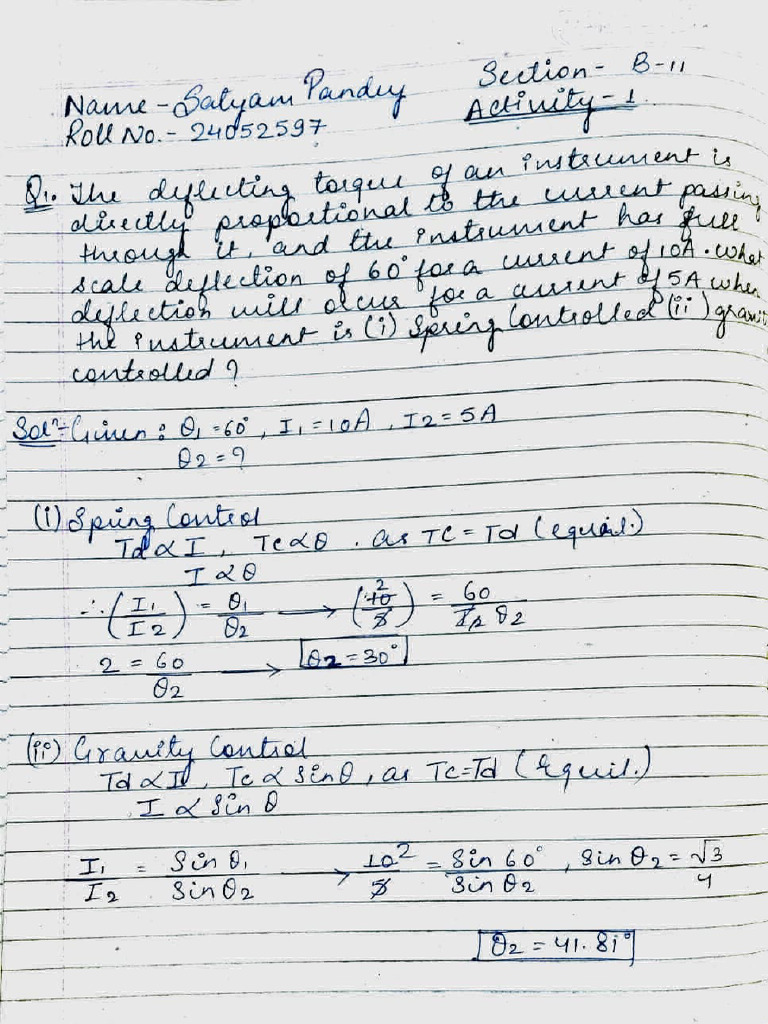 Name - Satyam Pandey Section - B-11
Roll No. - 24052597 Activity - 1
Q1. The deflecting torque of an instrument is
directly proportional to the current passing
through it, and the instrument has full
scale deflection of 60° for a current of 10A. what
deflection will occur for a current of 5A when
the instrument is (i) Spring Controlled (ii) gravit
controlled ?
Solⁿ- Given : θ1 = 60°, I1 = 10A, I2 = 5A
θ2 = ?
(i) Spring Control
Td ∝ I, Tc ∝ θ. as TC = Td (equil.)
I ∝ θ
∴ (I1/I2) = θ1/θ2 → (10/5) 2 = 60/θ2
2 = 60/θ2 → θ2 = 30°
(ii) Gravity Control
Td ∝ I, Tc ∝ Sinθ, as Tc=Td (Equil.)
I ∝ Sin θ
I1/I2 = Sin θ1/Sin θ2 → 10/5 2 = Sin 60°/Sin θ2, Sin θ2 = √3/4
θ2 = 41.81°